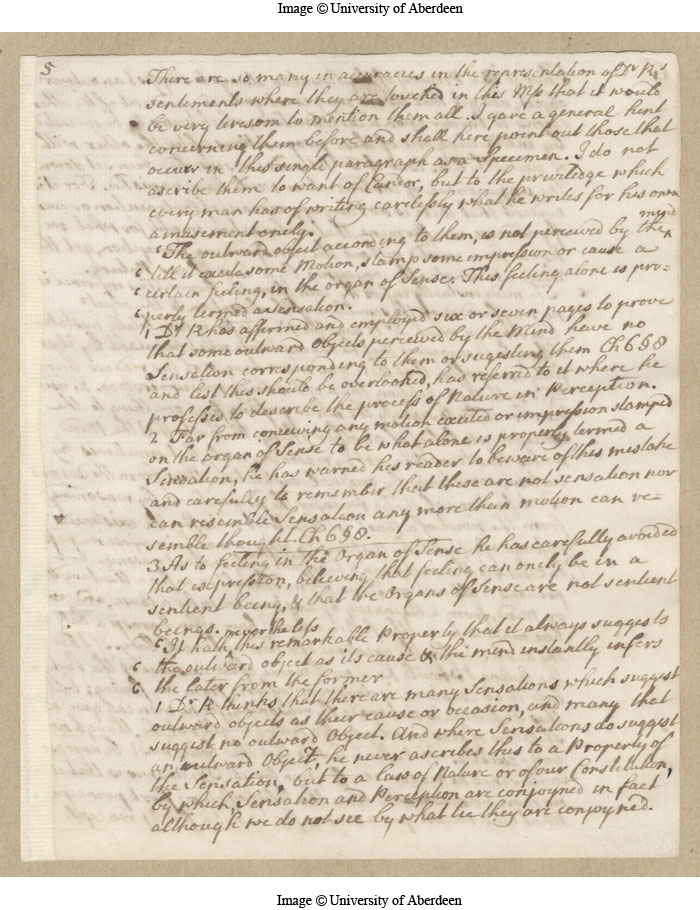 Image © University of Aberdeen
5
There are so many in accuracies in the representation of Dr Rs
sentiments where they are touched in this Mss that it would
be very tiresom to mention them all. I gave a general hint
concerning them before and shall here point out those that
occurr in this single paragraph as a Specimen. I do not
ascribe them to want of Candor, but to the priviledge which
every man has of writing carelessly what he writes for his own
amusement only.
‘The outward object according to them, is not perceived by the mind
‘till it excite some Motion, stamp some impression or cause a
‘certain feeling, in the organ of Sense. This feeling alone is pro=
‘perly termed a Sensation.
1 Dr R has affirmed and employed six or seven pages to prove
that some outward Objects perceived by the Mind have no
Sensation corresponding to them or sugesting them Ch 6 § 8
and lest this should be overlooked, has referred to it where he
professes to describe the process of Nature in Perception.
2 Far from conceiving any motion excited or impression stamped
on the organ of Sense to be what alone is properly termed a
Sensation, he has warned his reader to beware of this mistake
and carefully to remember that these are not sensation nor
can resemble Sensation any more than motion can re=
semble thought. Ch 6 § 8.
3 As to feeling in the Organ of Sense he has carefully avoided
that expression, believing that feeling can only be in a
sentient being, & that the Organs of Sense are not sentient
beings. nevertheless
‘It hath this remarkable Property that it always suggests
‘the outward object as its cause & the mind instantly infers
‘the later from the former
1 Dr R thinks that there are many Sensations which suggest
outward objects as their cause or occasion, and many that
suggest no outward Object. And where Sensations do suggest
an outward Object, he never ascribes this to a Property of
the Sensation, but to a law of Nature or of our Constitution,
by which, Sensation and Perception are conjoyned in fact
although we do not see by what tie they are conjoyned.
Image © University of Aberdeen